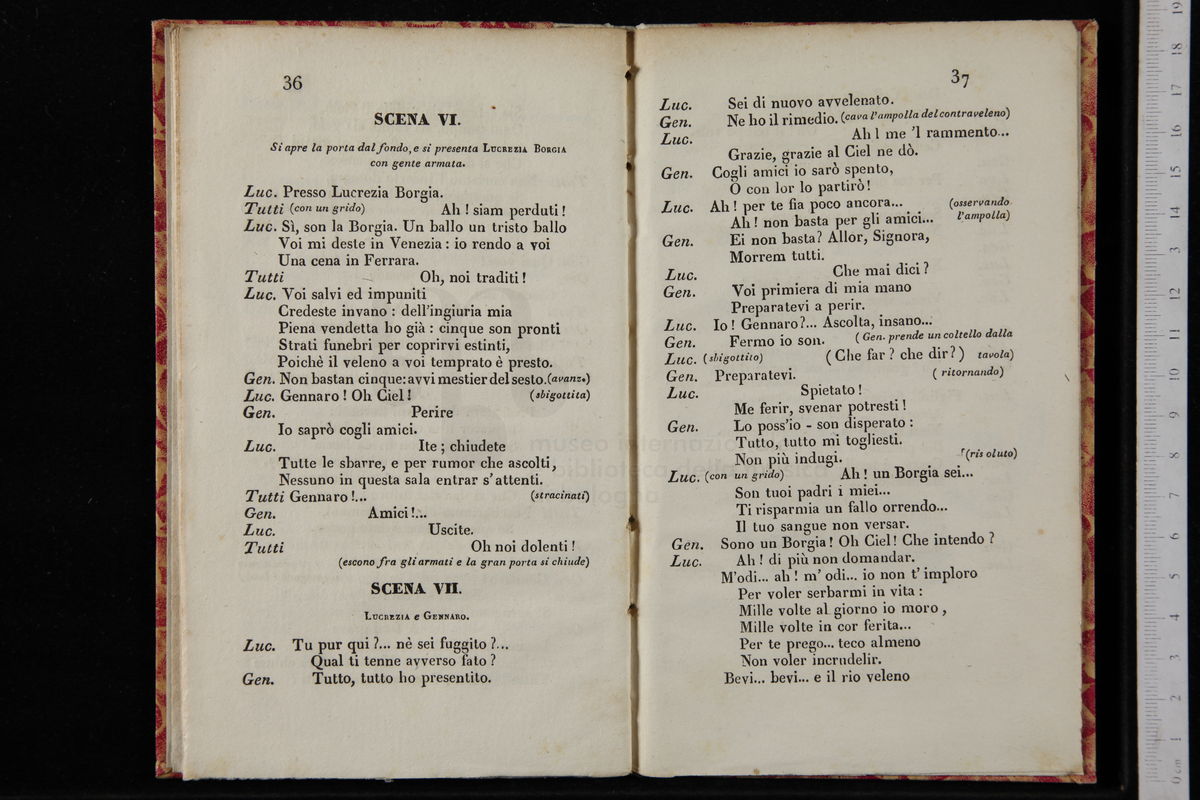 36
SCENA VI.
Si apre la porta dal fondo, e si presenta LUCREZIA BORGIA
con gente armata.
Luc. Presso Lucrezia Borgia.
Tutti (con un grido) Ah ! siam perduti !
Luc. Sì, son la Borgia. Un ballo un tristo ballo
Voi mi deste in Venezia : io rendo a voi
Una cena in Ferrara.
Tutti Oh, noi traditi !
Luc. Voi salvi ed impuniti
Credeste invano : dell'ingiuria mia
Piena vendetta ho già : cinque son pronti
Strati funebri per coprirvi estinti,
Poichè il veleno a voi temprato è presto.
Gen. Non bastan cinque: avvi mestier del sesto. (avanz.)
Luc. Gennaro ! Oh Ciel ! (sbigottita)
Gen. Perire
Io saprò cogli amici.
Luc. Ite ; chiudete
Tutte le sbarre, e per rumor che ascolti,
Nessuno in questa sala entrar s'attenti.
Tutti Gennaro !... (stracinati)
Gen. Amici !...
Luc. Uscite.
Tutti Oh noi dolenti !
(escono fra gli armati e la gran porta si chiude)
SCENA VII.
LUCREZIA e GENNARO.
Luc. Tu pur qui ?... nè sei fuggito ?...
Qual ti tenne avverso fato ?
Gen. Tutto, tutto ho presentito.
37
Luc. Sei di nuovo avvelenato.
Gen. Ne ho il rimedio. (cava l'ampolla del contraveleno)
Luc. Ah l me 'l rammento...
Grazie, grazie al Ciel ne dò.
Gen. Cogli amici io sarò spento,
O con lor lo partirò !
Luc. Ah ! per te fia poco ancora... (osservando
Ah ! non basta per gli amici... l'ampolla)
Gen. Ei non basta? Allor, Signora,
Morrem tutti.
Luc. Che mai dici ?
Gen. Voi primiera di mia mano
Preparatevi a perir.
Luc. Io ! Gennaro ?... Ascolta, insano...
Gen. Fermo io son. ( Gen. prende un coltello dalla
Luc. (sbigottito) ( Che far ? che dir ? ) tavola)
Gen. Preparatevi. ( ritornando)
Luc. Spietato !
Me ferir, svenar potresti !
Gen. Lo poss'io - son disperato :
Tutto, tutto mi togliesti.
Non più indugi. (ris oluto)
Luc. (con un grido) Ah ! un Borgia sei...
Son tuoi padri i miei...
Ti risparmia un fallo orrendo...
Il tuo sangue non versar.
Gen. Sono un Borgia ! Oh Ciel ! Che intendo ?
Luc. Ah ! di più non domandar.
M'odi... ah ! m' odi... io non t' imploro
Per voler serbarmi in vita :
Mille volte al giorno io moro ,
Mille volte in cor ferita...
Per te prego... teco almeno
Non voler incrudelir.
Bevi... bevi... e il rio veleno
museo internazionale
biblioteca della musica
bologna
0 cm 1 2 3 4 5 6 7 8 9 10 11 12 13 14 15 16 17 18 19